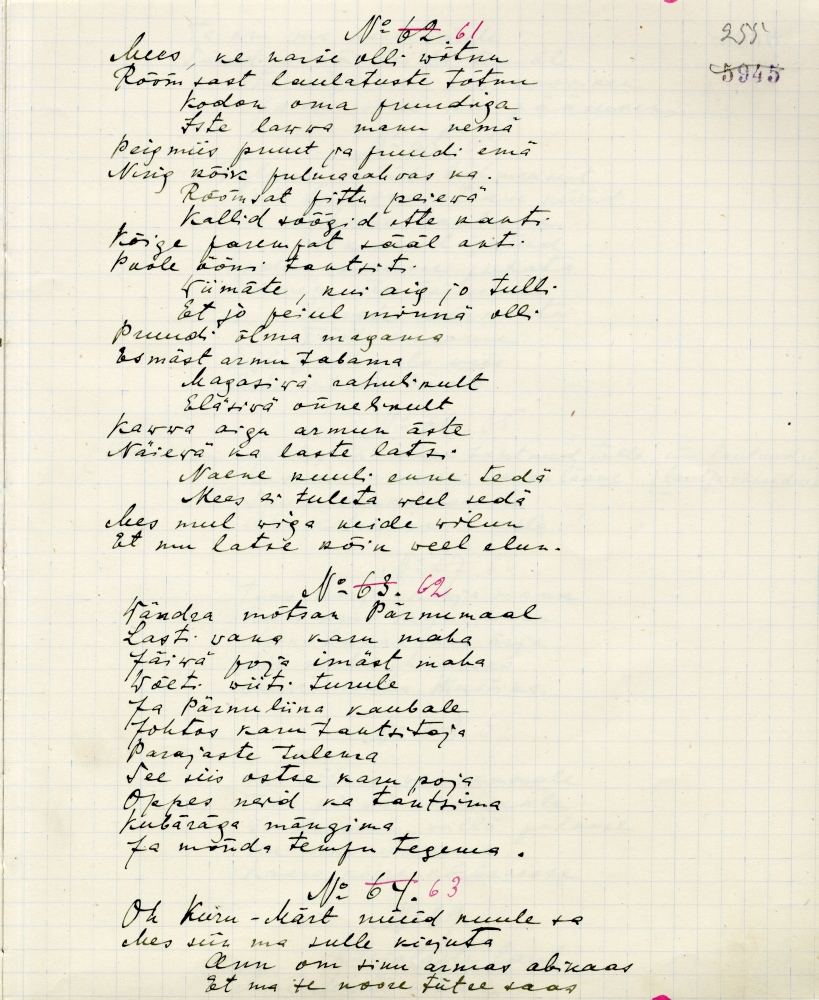 No 62. 61
255
5945
Mees, ke naise olli wõtnu
Rõõmsast laulatuste tõtnu
Kodon oma pruudiga
Iste lawwa manu nemä
Peigmiis pruut ja pruudi emä
Ninig kõik pulmarahwas ka.
Rõõmsat pittu peiewä
Kallid söögid ette kanti.
Kõige parempat sääl anti.
Puole ööni tantsiti.
Wiimäte, kui aig jo tulli
Et jo peiul minnä olli
Pruudi õlma magama
Esmäst armu tabama
Magasiwä rahulikult
Eläsiwä õnnelikult
Kawwa aigu armun äste
Näiewä ka laste latsi.
Naene kuuli enne tedä
Mees ei tuleta weel sedä
Mes mul wiga neide wilun
Et mu latse kõik weel elun.
No 63. 62
Wändra mõtsan Pärnumaal
Lasti vana karu maha
Jäiwä poja imäst maha
Wõeti wiiti turule
Ja Pärnuliina kaubale
Johtos karu tantsitaja
Parajaste tulema
See siis ostse karu poja
Oppes neid ka tantsima
Kubäräga mängima
Ja mõnda tempu tegema.
No 64. 63
Oh Kuru-Märt nüüd kuule sa
Mes siin ma sulle kirjuta
Ann om sinu armas abikaas
Et ma se noore tütre saas